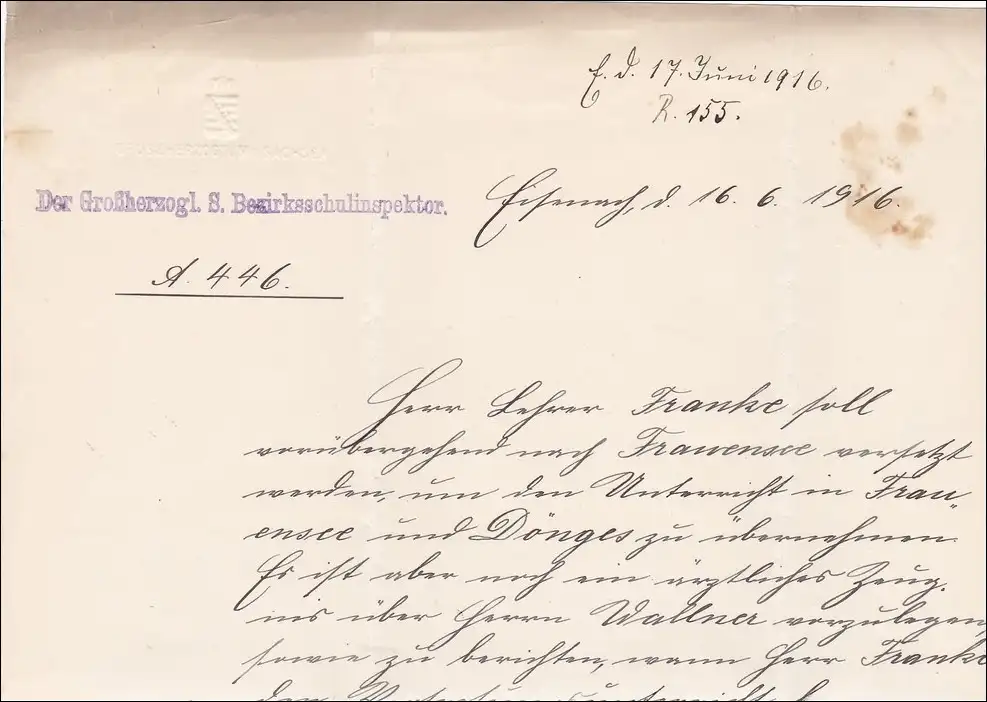 E. d. 17. Juni 1916.
R. 155.
GROSSHERZOGTUM SACHSEN
Der Großherzogl. S. Bezirksschulinspektor.
Eisenach, d. 16. 6. 1916.
A. 446.
Herr Lehrer Franke soll
vorübergehend nach Frauensee versetzt
werden, um den Unterricht in Frau„
ensee und Dönges zu übernehmen.
Es ist aber noch ein ärztliches Zeug„
nis über Herrn Wallner vorzulegen,
sowie zu berichten, wann Herr Franke
den Vertretungsunterricht